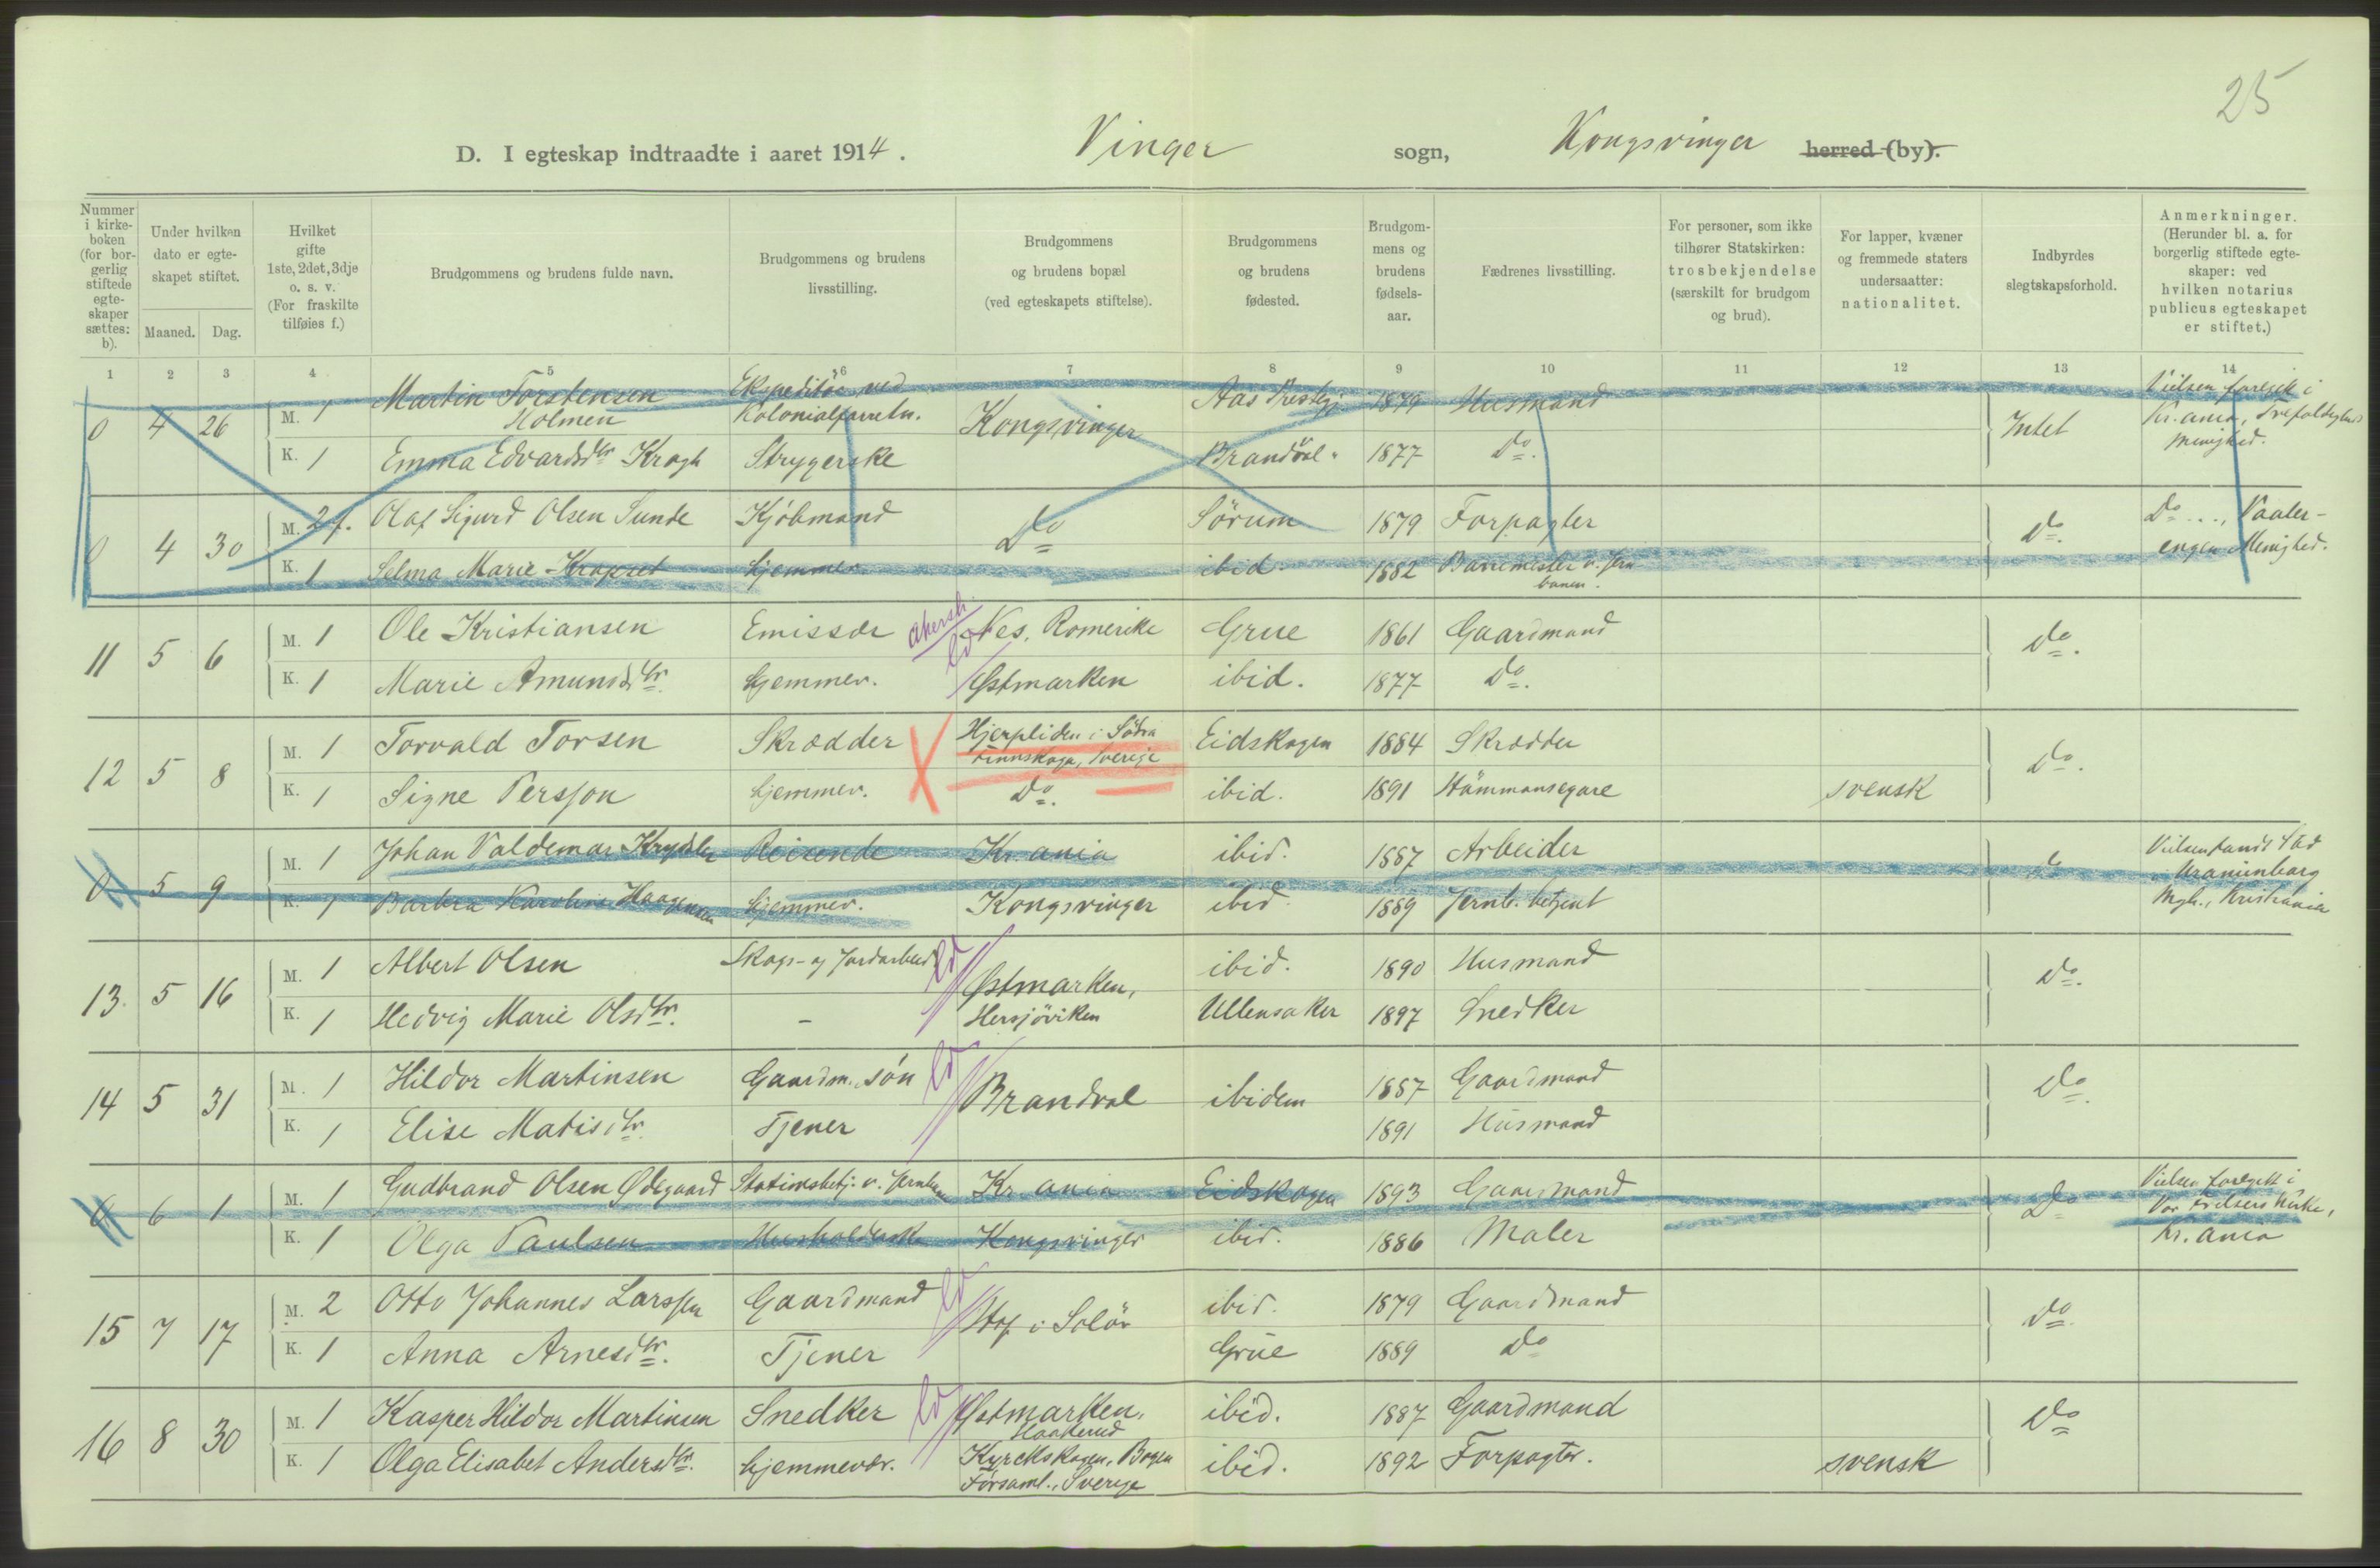 25
D. I egteskap indtraadte i aaret 1914. Vinger sogn, Kongsvinger herred (by).
Nummer i kirkeboken (for borgerlig stiftede egteskaper sættes: b).
Under hvilken dato er egteskapet stiftet.
Maaned. Dag.
Hvilket gifte 1ste, 2det, 3dje o. s. v. (For fraskilte tilføies f.)
Brudgommens og brudens fulde navn.
Brudgommens og brudens livsstilling.
Brudgommens og brudens bopæl (ved egteskapets stiftelse).
Brudgommens og brudens fødested.
Brudgommens og brudens fødselsaar.
Fædrenes livsstilling.
For personer, som ikke tilhører Statskirken: trosbekjendelse (særskilt for brudgom og brud).
For lapper, kvæner og fremmede staters undersaatter: nationalitet.
Indbyrdes slegtskapsforhold.
Anmerkninger. (Herunder bl. a. for borgerlig stiftede egteskaper: ved hvilken notarius publicus egteskapet er stiftet.)
1 2 3 4 5 6 7 8 9 10 11 12 13 14
0 4 26 M. 1 Martin Torstensen Holmen Ekspeditør ved Kolonialforretn. Kongsvinger Aas Prestegj 1879 Husmand Intet Vielsen foregik i Kr.ania, Trefoldigheds Menighed.
K. 1 Emma Edvardsdtr Krogh Strygerske Brandval 1877 Do.
0 4 30 M. 2 f. Olaf Sigurd Olsen Sunde Kjöbmand Do Sörum 1879 Forpagter Do. Do ..., Vaalerengen Menighed.
K. 1 Selma Marie hjemmev. ibid. 1882 Banemester v. Jernbanen.
11 5 6 M. 1 Ole Kristiansen Emissær Akersh. Nes, Romerike Grue 1861 Gaardmand Do.
K. 1 Marie Amundsdtr. hjemmev. Østmarken ibid. 1877 Do.
12 5 8 M. 1 Torvald Torsen Skrædder Hjerpliden i Södra Finnskoga, Sverige Eidskogen 1884 Skrædder Do.
K. 1 Signe Persson hjemmev. Do. ibid. 1891 Hämmansegare svensk
0 5 9 M. 1 Johan Valdemar Reisende Kr.ania ibid. 1887 Arbeider Do Uranienborg Mgh., Kristiania
K. 1 Barbra Karoline Haagensen hjemmev. Kongsvinger ibid 1889 Jernb. betjent
13. 5 16 M. 1 Albert Olsen Skogs- og Jordarbeid Østmarken, Hersjöviken ibid. 1890 Husmand Do.
K. 1 Hedvig Marie Olsdtr. - Ullensaker 1897 Snedker
14 5 31 M. 1 Hildor Martinsen Gaardm. sön Brandval ibidem 1887 Gaardmand Do.
K. 1 Elise Matisdtr. Tjener 1891 Husmand
0 6 1 M. 1 Gudbrand Olsen Ødegaard Stationsbetj. v. Jernbane Kr.ania Eidskogen 1893 Gaardmand Do Vielsen foregik i Vor Frelsers Kirke, Kr.ania
K. 1 Olga Paulsen Husholderske Kongsvinger ibid. 1886 Maler
15 7 17 M. 2 Otto Johannes Larssen Gaardmand Hof i Solör ibid. 1879 Gaardmand Do.
K. 1 Anna Arnesdtr. Tjener Grue 1889 Do
16 8 30 M. 1 Kasper Hildor Martinsen Snedker Østmarken, Haakerud ibid. 1887 Gaardmand Do
K. 1 Olga Elisabet Andersdtr. hjemmevær. Kyrckskogen, Bogen Församl., Sverige ibid. 1892 Forpagter. svensk